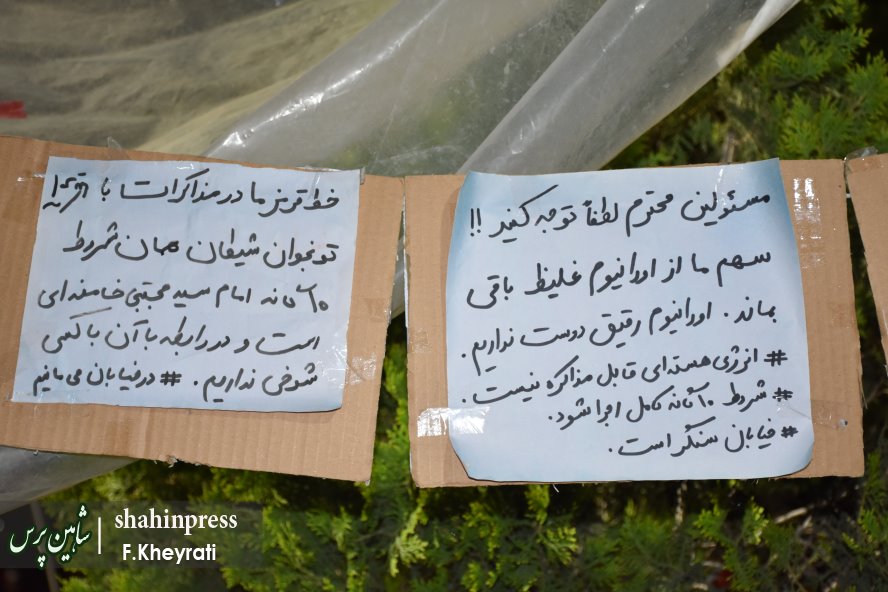 مسئولین محترم لطفاً توجه کنید !!
سهم ما از اورانیوم غلیظ باقی
بماند. اورانیوم رقیق دوست نداریم.
# انرژی هسته‌ای قابل مذاکره نیست.
# شروط ۱۰ گانه کامل اجرا شود.
# خیابان سنگر است.
خط قرمز ما در مذاکرات با
شیطان همان شروط
۱۰ گانه امام سید مجتبی خامنه‌ای
است و در رابطه با آن با کسی
شوخی نداریم. # در خیابان می مانیم
شاهین پرس
shahinpress
F.Kheyrati